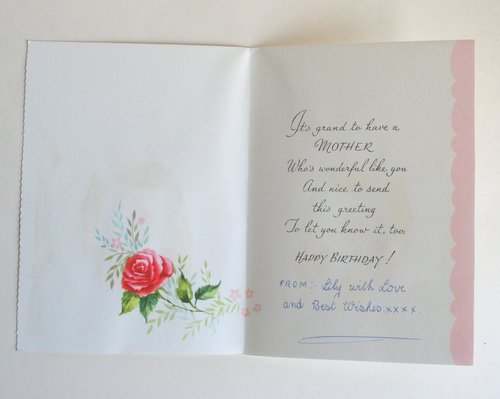 It's grand to have a
MOTHER
Who's wonderful like you
And nice to send
this greeting
To let you know it, too.
HAPPY BIRTHDAY!
FROM:- Lily with Love
and Best Wishes xxxx.